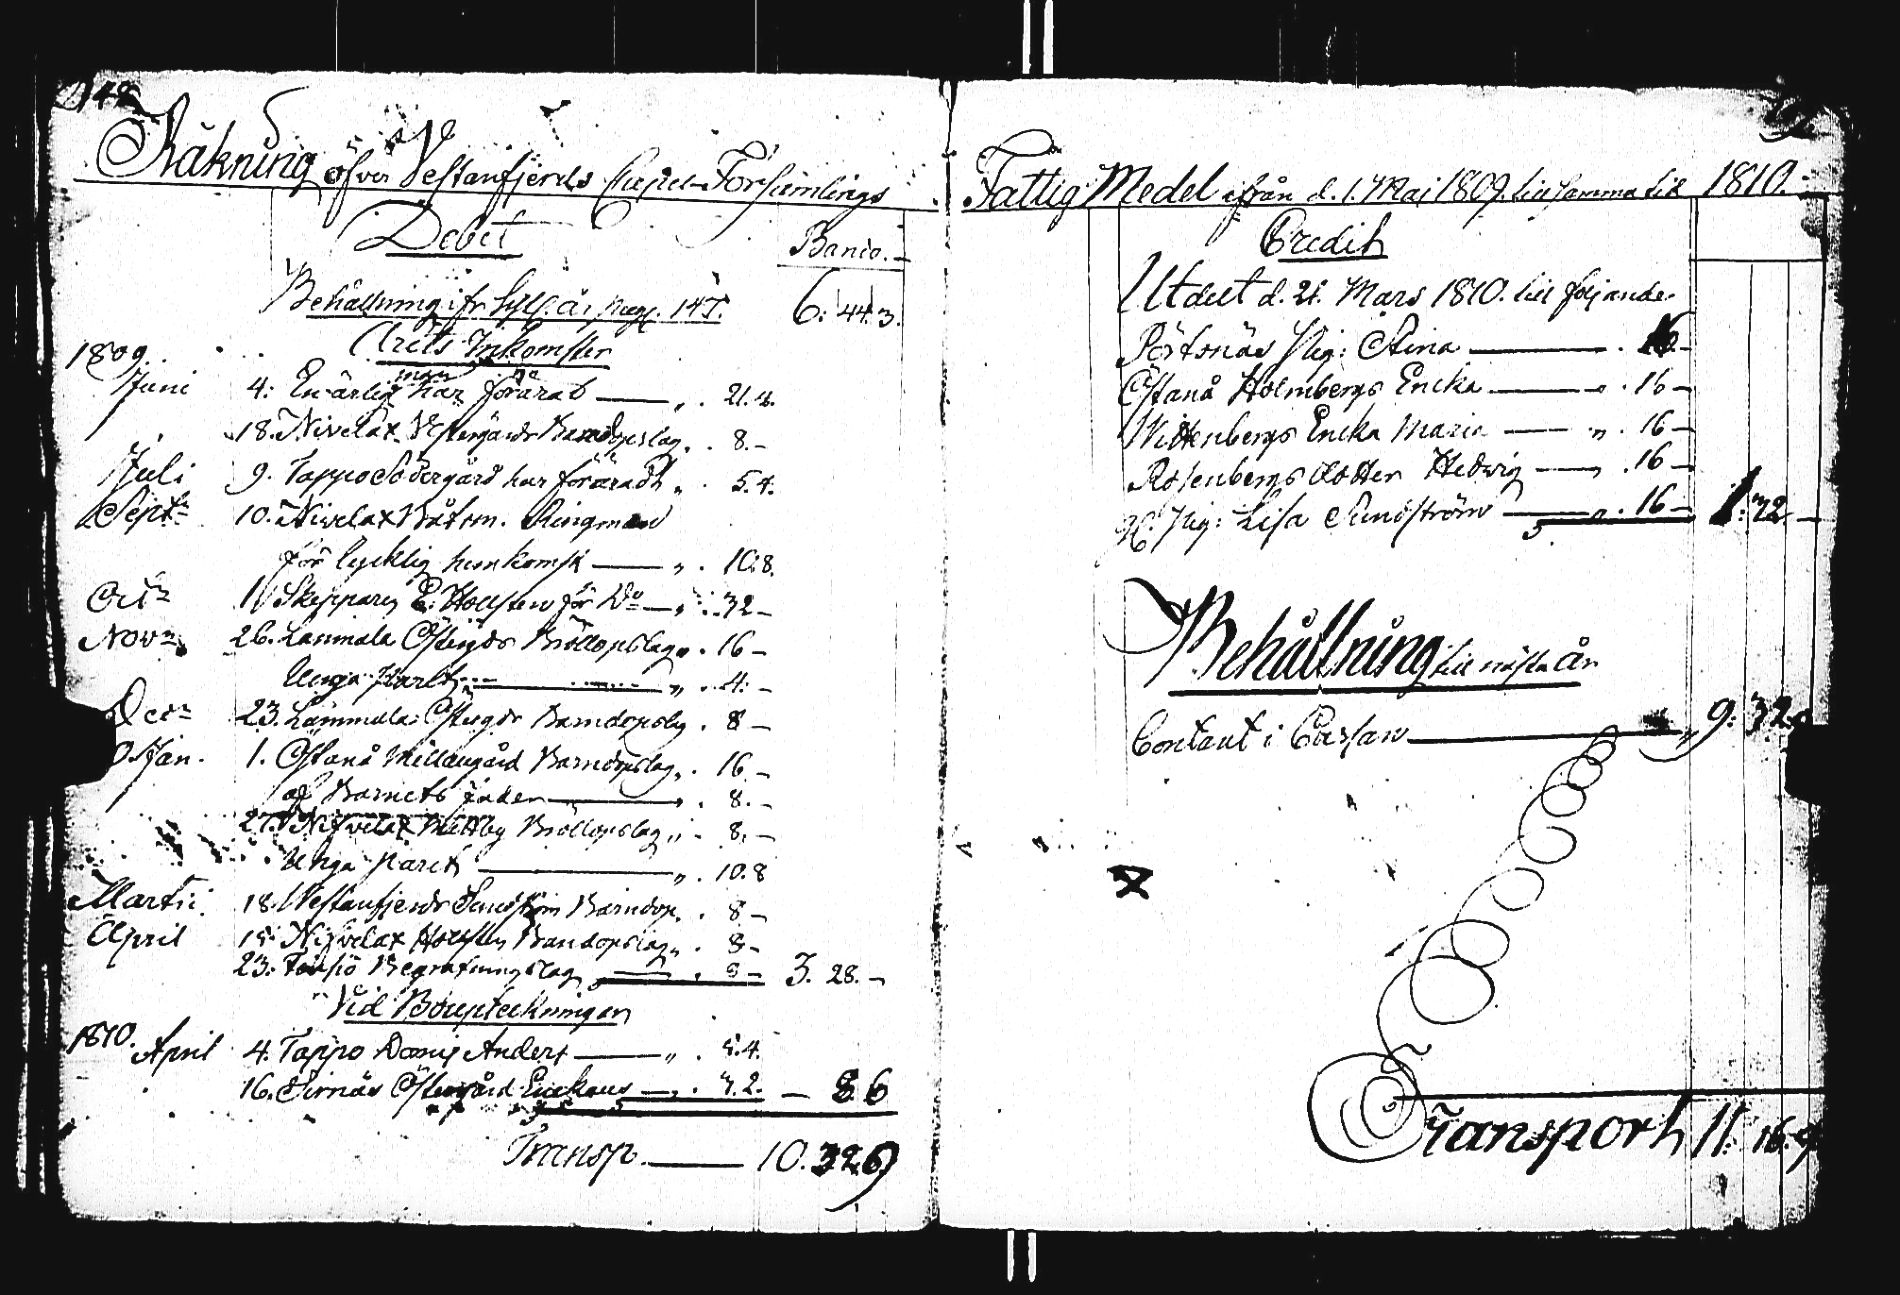 148
Räkning öfver Vestanfjerds Capel-Församlings
Debet
Banco.
Behållning ifr. sistl. år pag. 147. 6: 44. 3.
Årets Inkomster
1809.
Juni 4: En ärlig man har förärat — „. 21.4.
18. Nivelax Vestergårds Barndopslag „. 8.–
Juli 9. Tappo Södergård har föräradt „. 5.4.
Septr 10. Nivelax Båtsm. Ringman
för lycklig hemkomst — „. 10.8.
Octr 11 Skepparen E. Hollsten för Do — „. 32 –
Novr 26. Lammala Östergds Bröllopslag „. 16 –
Unga Paret — „. 4. –
Decr 23. Lammala Östergds Barndopslag . 8 –
Jan. 1. Östanå Mellangård Barndopslag „. 16 –
af Barnets fader — . 8. –
27. Nifvelax Bröllopslag „. 8. –
Unga Paret — „. 10.8
Martii 18 Westanfjerds Sundström Barndop „. 8 –
April 15. Nifvelax Hollsten Barndopslag „. 8 –
23. Begrafningslag — . 8 – 3. 28. –
Vid Bouptekningar
1810. April 4. Tappo Anders — „. 5.4.
16. Östergård Enckans — „. 3.2. — 8 6
Transp. — 10. 32 9
Fattig Medel ifrån d. 1. Maj 1809. till samma tid 1810.
Credit
Utdelt d. 21. Mars 1810. till följande
Pörtsnäs Pig: Stina — . 16 –
Östanå Holmbergs Encka — „. 16 –
Wittenbergs Encka Maria — „. 16 –
Rosenbergs dotter Hedvig — „. 16 –
Pig: Lisa Sundström — „. 16 – 1: 32 –
Behållning till nästa år
Contant i Cassan — „ 9: 32.
Transport 11: 16. 9